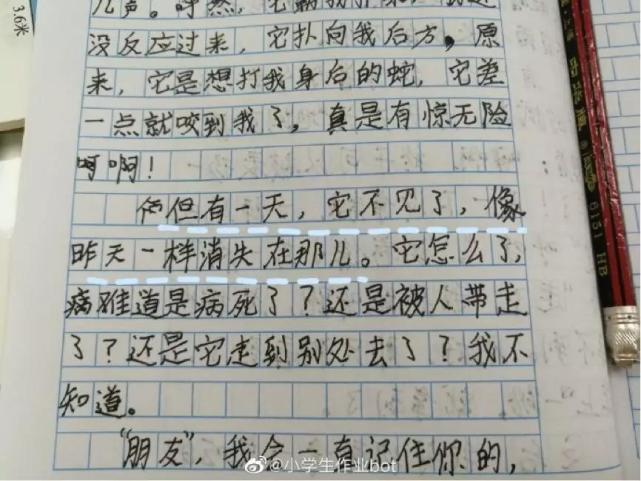 没反应过来，它扑向我后方，原
来，它是想打我身后的蛇，它差
一点就咬到我了，真是有惊无险
呵啊！
但有一天，它不见了，像
昨天一样消失在那儿。它怎么了，
病难道是病死了？还是被人带走
了？还是它走到别处去了？我不
知道。
“朋友”，我会一直记住你的，
3.6米
6151 HB
@小学生作业bot